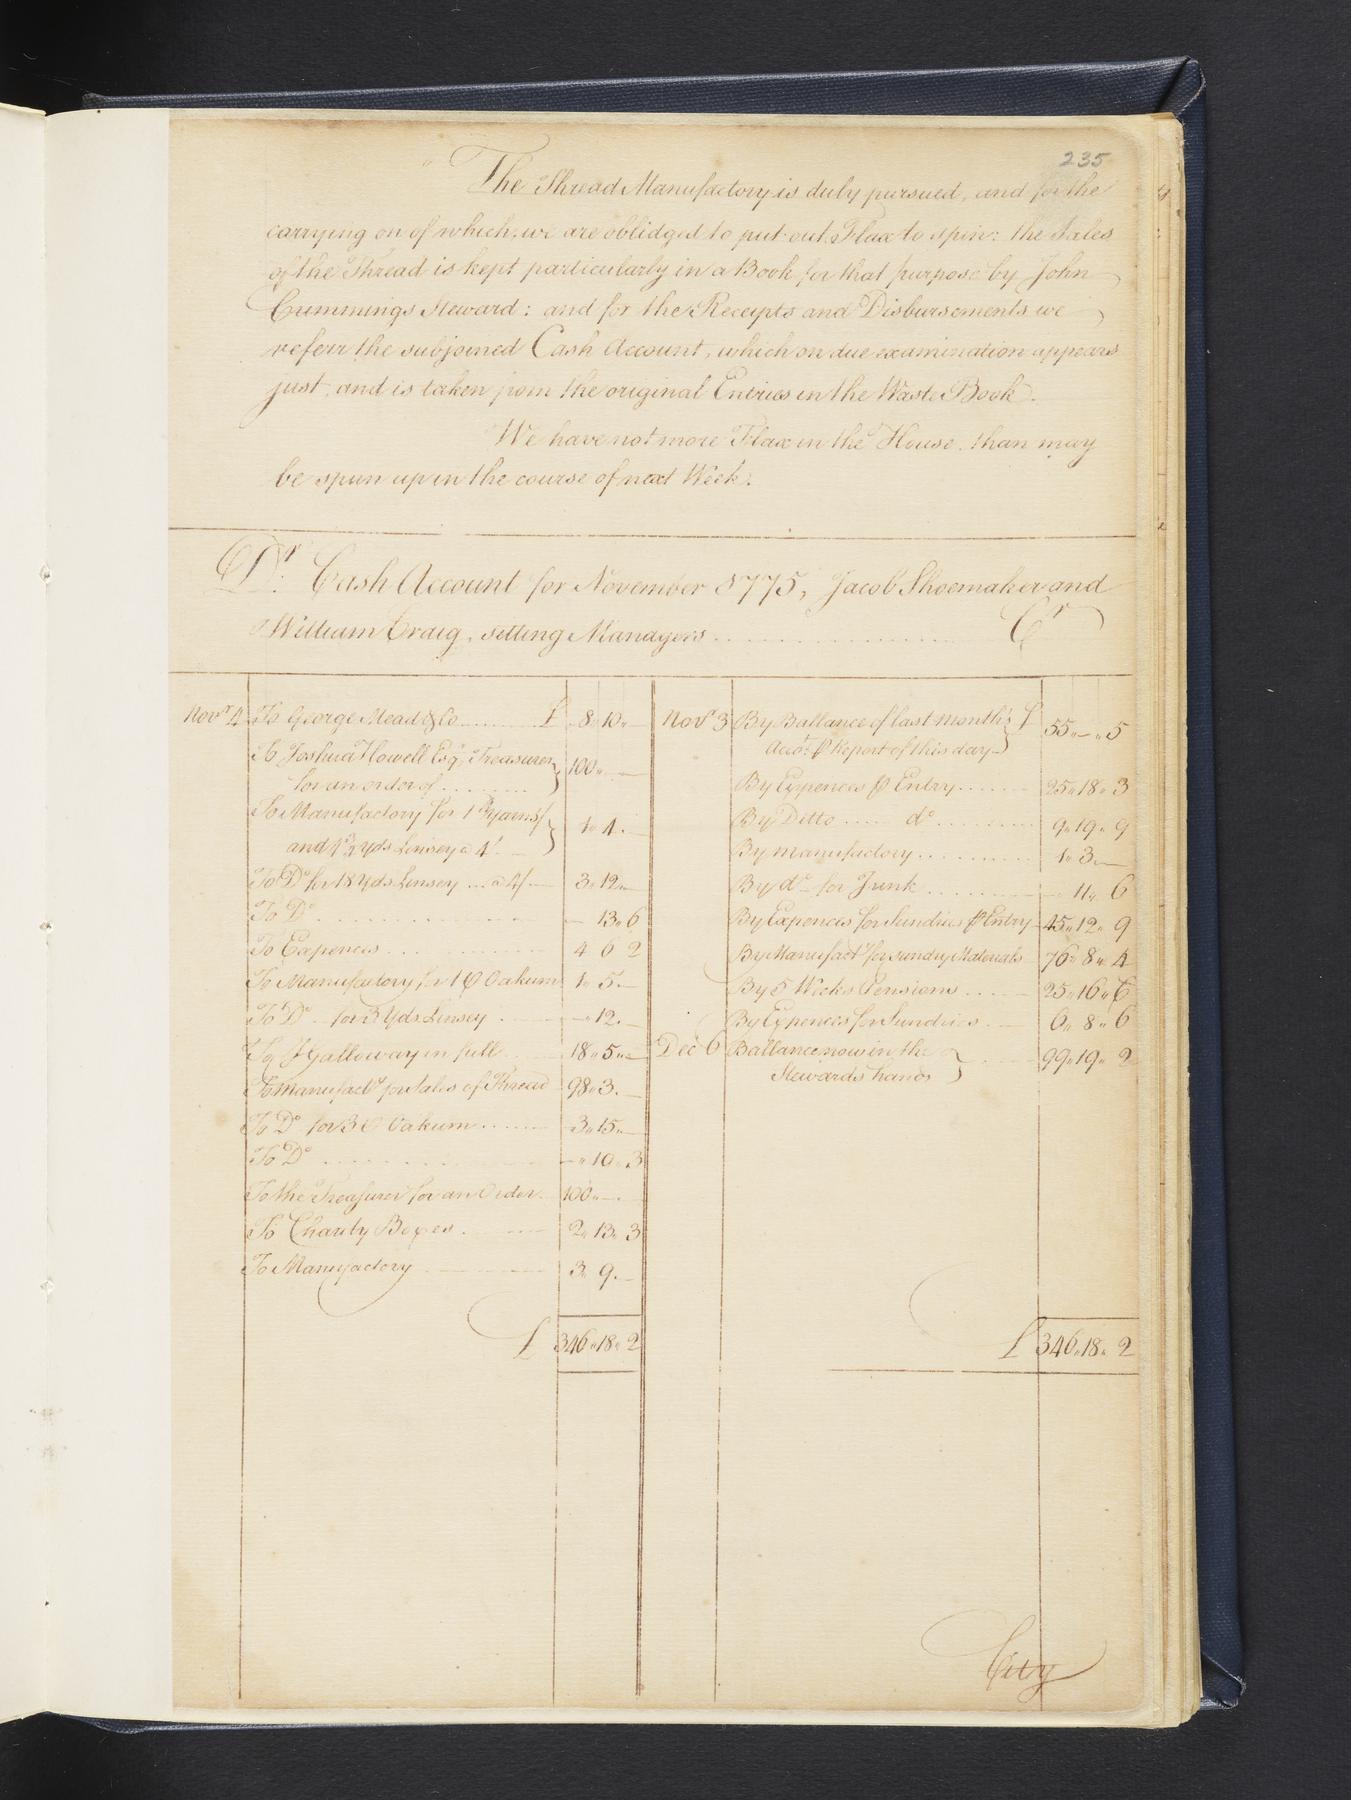 235
The Thread Manufactory is duly pursued, and for the
carrying on of which, we are oblidged to put out Flax to spin: the Sales
of the Thread is kept particularly in a Book for that purpose by John
Cummings Steward: and for the Receipts and Disbursements we
referr the subjoined Cash Account, which on due examination appears
just, and is taken from the original Entries in the Waste Book.
We have not more Flax in the House, than may
be spun up in the course of next Week.
Dr. Cash Account for November 1775, Jacob Shoemaker and
William Craig, sitting Managers .................. Cr
Novr 4 To George Mead & Co ...... £ 8 " 10 " —
To Joshua Howell Esqr. Treasurer
for an order of ......... } 100 " — —
To Manufactory for
and yds Linsey a 4/ — } 1 " 4 . —
To Do for 18 Yds Linsey ... a 4/ — 3 " 12 " —
To Do ............ — 13 " 6
To Expences ............ 4 6 2
To Manufactory for 1 C Oakum 1 " 5 . —
To Do .. for 3 Yds Linsey . — — " 12 . —
To J Galloway in full .... 18 " 5 " —
To Manufacty for Sales of Thread 98 " 3 . —
To Do for 3 C Oakum ...... 3 " 15 " —
To Do ............ — " 10 " 3
To the Treasurer for an Order .. 100 " — .
To Charity Boxes . — 2 " 13 " 3
To Manufactory — 3 " 9 . —
£ 346 " 18 " 2
Novr 3 By Ballance of last month's } £ 55 " — " 5
Accot. ⅌ Report of this day }
By Expences ⅌ Entry ...... 25 " 18 " 3
By Ditto ..... do ......... 9 " 19 " 9
By manufactory .......... 1 " 3 . —
By do — for Junk ......... — 11 " 6
By Expences for Sundries ⅌ Entry 45 " 12 " 9
By Manufacty for sundry Materials 76 " 8 " 4
By 5 Weeks Pensions ..... 25 " 16 " 6
By Expences for Sundries . — 6 " 8 " 6
Dec 6 Ballance now in the } .... 99 " 19 " 2
Stewards hands }
£ 346 " 18 " 2
City